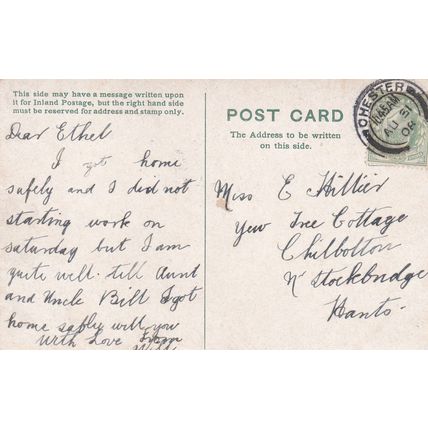 This side may have a message written upon
it for Inland Postage, but the right hand side
must be reserved for address and stamp only.
Dear Ethel
I got home
safely and I did not
starting work on
saturday but I am
quite well. till Aunt
and Uncle Bill I got
home saflie will you
With Love from
Will
POST CARD
The Address to be written
on this side.
Miss E Hillier
Yew Tree Cottage
Chilbolton
Nr Stockbridge
Hants.
CHESTER
11.45AM
AU 31
08